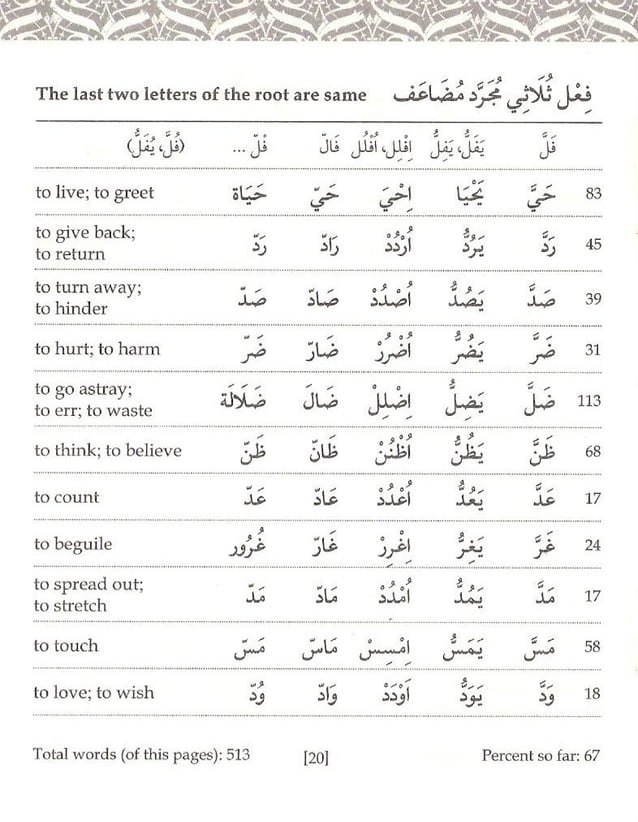 The last two letters of the root are same فِعْل ثُلَاثِي مُجَرَّد مُضَاعَف
فَلَّ يَفَلُّ، يَفِلُّ اِفْلِل، اُفْلُل فَالّ فَلّ ... (فُلَّ، يُفَلُّ)
to live; to greet حَيَاة حَيّ اِحْيَ يَحْيَا حَيَّ 83
to give back;
to return رَدّ رَادّ اُرْدُدْ يَرُدُّ رَدَّ 45
to turn away;
to hinder صَدّ صَادّ اُصْدُدْ يَصُدُّ صَدَّ 39
to hurt; to harm ضَرّ ضَارّ اُضْرُرْ يَضُرُّ ضَرَّ 31
to go astray;
to err; to waste ضَلَالَة ضَالّ اِضْلِلْ يَضِلُّ ضَلَّ 113
to think; to believe ظَنّ ظَانّ اُظْنُنْ يَظُنُّ ظَنَّ 68
to count عَدّ عَادّ اُعْدُدْ يَعُدُّ عَدَّ 17
to beguile غُرُور غَارّ اِغْرِرْ يَغُرُّ غَرَّ 24
to spread out;
to stretch مَدّ مَادّ اُمْدُدْ يَمُدُّ مَدَّ 17
to touch مَسّ مَاسّ اِمْسِسْ يَمَسُّ مَسَّ 58
to love; to wish وُدّ وَادّ اَوْدَدْ يَوَدُّ وَدَّ 18
Total words (of this pages): 513 [20] Percent so far: 67